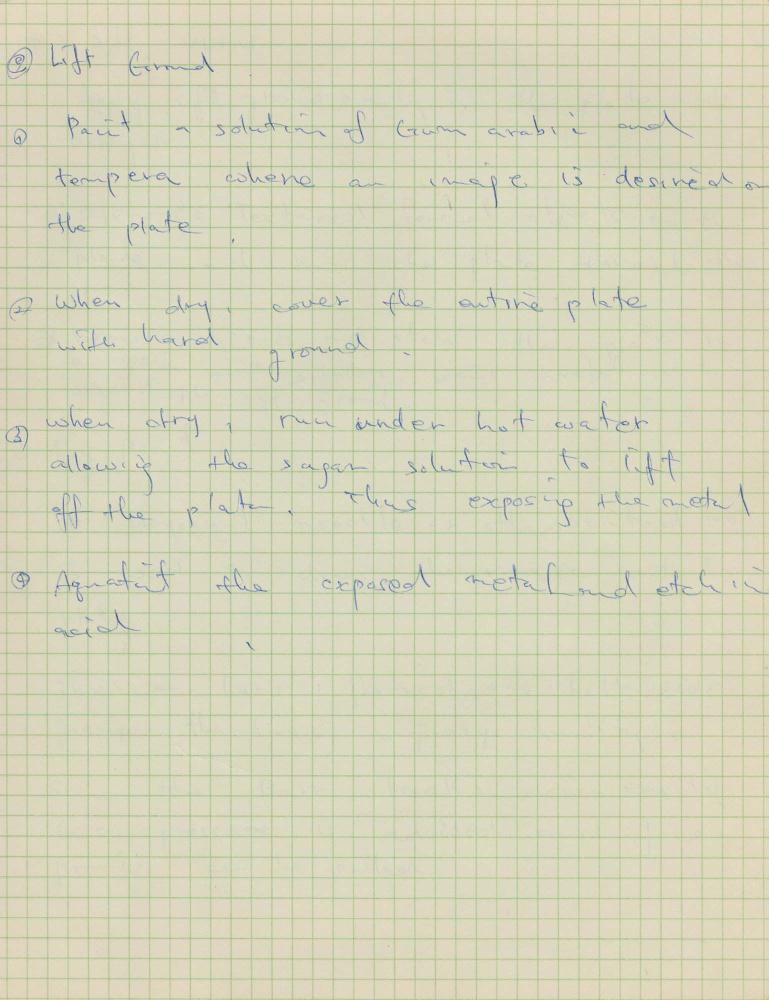 ② Lift Ground
① Paint a solution of Gum arabic and
tempera where an image is desired on
the plate.
② When dry, cover the entire plate
with hard ground.
③ when dry, run under hot water
allowing the sugar solution to lift
off the plate. Thus exposing the metal
④ Aquatint the exposed metal and etch in
acid.